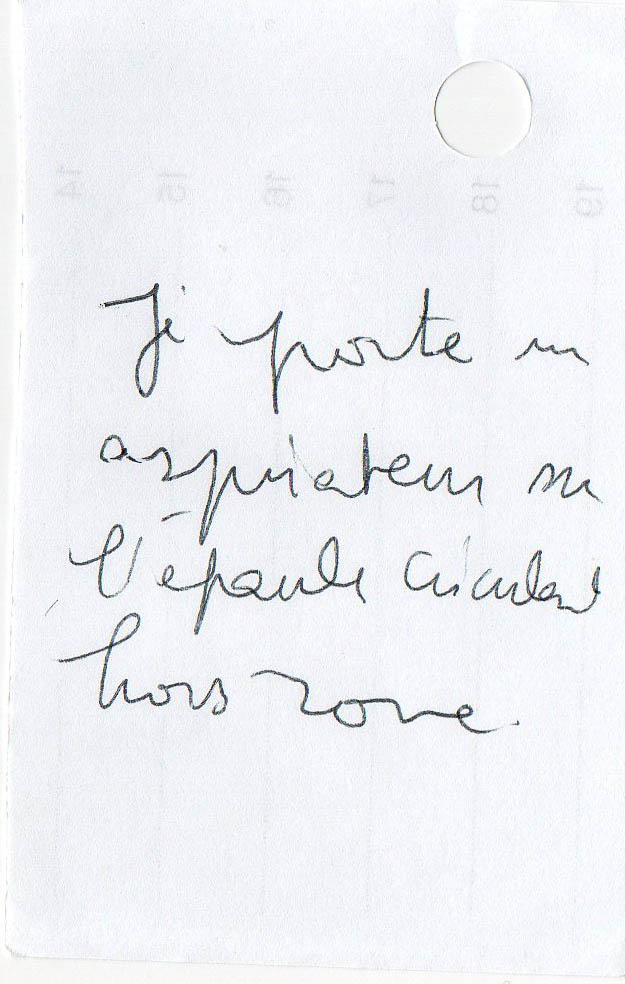 14 15 16 17 18 19
Je porte un
aspirateur sur
l'épaule circulant
hors zone